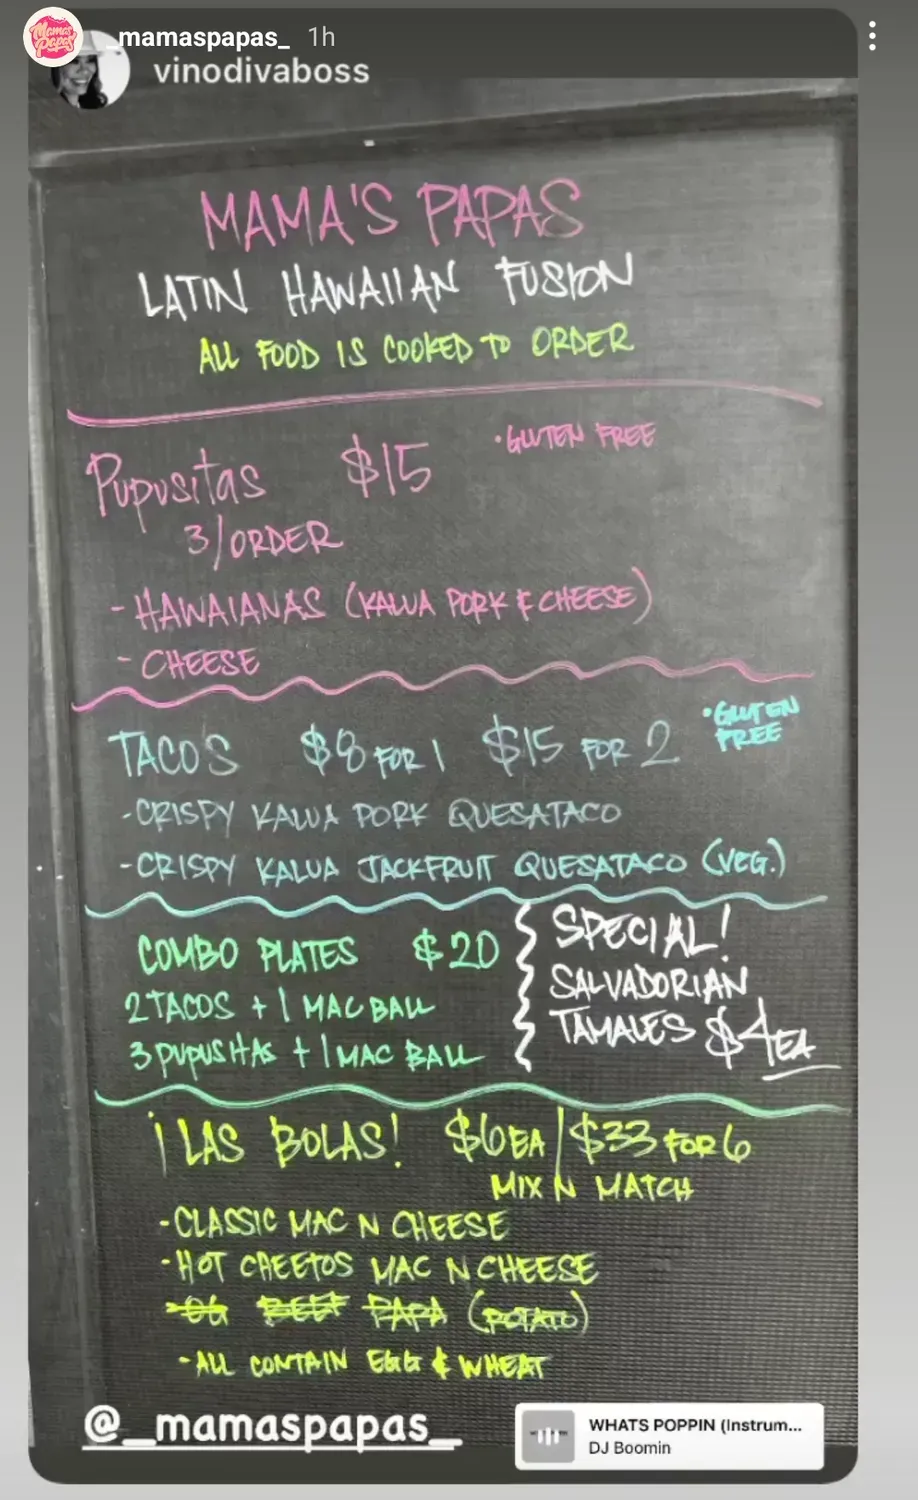 Mamas Papas
_mamaspapas_ 1h
vinodivaboss
MAMA'S PAPAS
LATIN HAWAIIAN FUSION
ALL FOOD IS COOKED TO ORDER
Pupusitas $15 •GLUTEN FREE
3/ORDER
- HAWAIANAS (KALUA PORK & CHEESE)
- CHEESE
TACOS $8 FOR 1 $15 FOR 2 •GLUTEN FREE
-CRISPY KALUA PORK QUESATACO
-CRISPY KALUA JACKFRUIT QUESATACO (VEG.)
COMBO PLATES $20
2 TACOS + 1 MAC BALL
3 PUPUSITAS + 1 MAC BALL
SPECIAL!
SALVADORIAN
TAMALES $4 EA
¡LAS BOLAS! $6 EA/$33 FOR 6
MIX N MATCH
-CLASSIC MAC N CHEESE
-HOT CHEETOS MAC N CHEESE
-OG BEEF PAPA (POTATO)
-ALL CONTAIN EGG & WHEAT
@_mamaspapas_
WHATS POPPIN (Instrum...
DJ Boomin